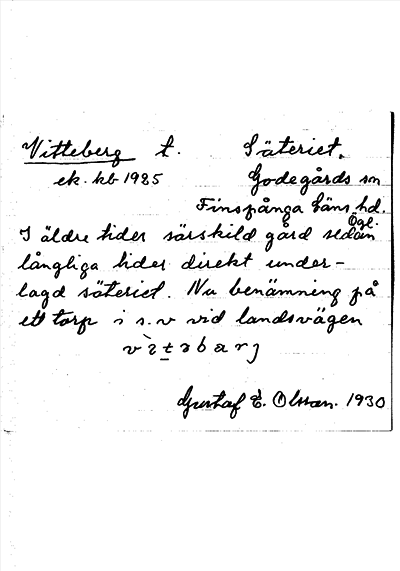 Vitteberg t. Säteriet.
ek. kb 1925 Godegårds sn
Finspånga läns hd.
Ögl.
I äldre tider särskild gård sedan
långliga tider direkt under-
lagd säteriet. Nu benämning på
ett torp i s.v vid landsvägen
vìtəbarj
Gustaf E. Olsson. 1930